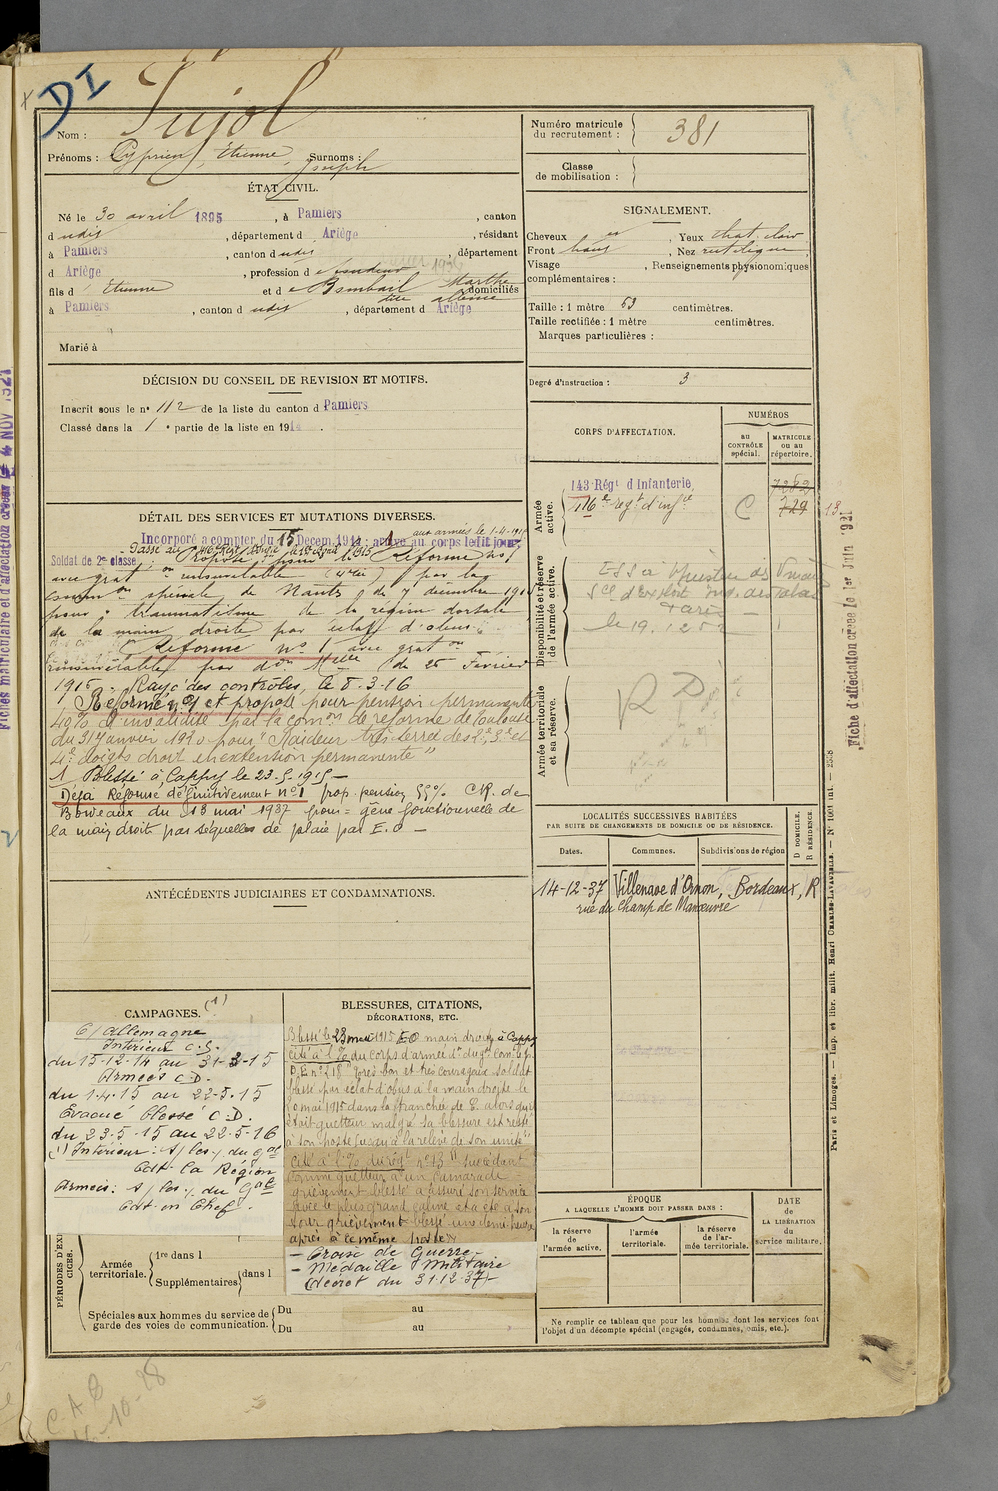 DI
Nom : Pujol
Prénoms : Cyprien, Etienne, Surnoms :
Joseph
ÉTAT CIVIL.
Né le 30 avril 1895, à Pamiers, canton
d udis, département d Ariège, résidant
à Pamiers, canton d udis, département
d Ariège, profession d
fils d Etienne et d e Bombail Marthe
domiciliés
à Pamiers, canton d udis, département d Ariège
Marié à
DÉCISION DU CONSEIL DE REVISION ET MOTIFS.
Inscrit sous le n° 112 de la liste du canton d Pamiers
Classé dans la 1e partie de la liste en 191
DÉTAIL DES SERVICES ET MUTATIONS DIVERSES.
aux armées le 1-4-1915
Incorporé à compter du 15 Décem. 1914; arrivé au corps ledit jour,
Soldat de 2e classe
Passé au 116e Regt d'Infie le 1er Avril 1915
Proposé pour Réforme no 1
avec grat on renouvelable par la
comm on spéciale de Nantes du 7 décembre 1915
pour : traumatisme de la région dorsale
de la main droite par éclat d'obus
Réformé no 1 avec grat on
renouvelable par don Mlle du 25 Février
1916. Rayé des contrôles, le 8-3-16
Réformé no 1 et proposé pour pension permanente
40% d'invalidité par la comon de réforme de Toulouse
du 31 Janvier 1920 pour "Raideur très serrée des 2e, 3e et
4e doigts droit en extension permanente"
1 Blessé à Cappy le 23-5-1915 —
Déjà Réformé définitivement no 1 prop. pension 55% C.R. de
Bordeaux du 13 mai 1937 pour = gêne fonctionnelle de
la main droit par séquelles de plaie par E.O —
ANTÉCÉDENTS JUDICIAIRES ET CONDAMNATIONS.
CAMPAGNES. (1)
C/ Allemagne
Intérieur C.S.
du 15-12-14 au 31-3-15
Armées C.D.
du 1.4.15 au 22-5-15
Evacué blessé C.D.
du 23-5-15 au 22-5-16
(1) Intérieur : s/les. du Gal
Cdt. la Région
Armées : s/les. du Gal
Cdt. en Chef
BLESSURES, CITATIONS,
DÉCORATIONS, ETC.
Blessé le 23 mai 1915 EO main droite à Cappy
Cité à l'O/ du corps d'armée
"très bon et très courageux soldat
blessé par éclat d'obus à la main droite le
mai 1915 dans la tranchée de C. alors qu'il
était guetteur malgré sa blessure est resté
à son poste jusqu'à la relève de son unité"
Cité à l'O/ du régt no 13 "succédant
comme guetteur à un camarade
grièvement blessé a assuré son service
avec le plus grand calme et a été à son
tour grièvement blessé une demi heure
après à ce même poste"
— Croix de Guerre —
— Médaille Militaire
(décret du 31-12-37) —
PÉRIODES D'EXERCICES.
Armée territoriale.
1re dans l
Supplémentaires dans l
Spéciales aux hommes du service de garde des voies de communication.
Du au
Du au
Numéro matricule
du recrutement : 381
Classe
de mobilisation :
SIGNALEMENT.
Cheveux, Yeux chat. clair
Front haut, Nez rectiligne
Visage, Renseignements physionomiques
complémentaires :
Taille : 1 mètre 63 centimètres.
Taille rectifiée : 1 mètre centimètres.
Marques particulières :
Degré d'instruction : 3
CORPS D'AFFECTATION.
NUMÉROS
au CONTRÔLE spécial.
MATRICULE ou au répertoire.
Armée active.
143 Régt d'Infanterie 7282
116e regt d'infie C 729 13
Disponibilité et réserve de l'armée active.
Paris
Armée territoriale et sa réserve.
RD
LOCALITÉS SUCCESSIVES HABITÉES
PAR SUITE DE CHANGEMENTS DE DOMICILE OU DE RÉSIDENCE.
Dates. Communes. Subdivisions de région
D DOMICILE.
R RÉSIDENCE.
14-12-37 Villenave d'Ornon, Bordeaux, R
rue du Champ de Manœuvre
ÉPOQUE
A LAQUELLE L'HOMME DOIT PASSER DANS :
la réserve de l'armée active.
l'armée territoriale.
la réserve de l'armée territoriale.
DATE de LA LIBÉRATION du service militaire.
Ne remplir ce tableau que pour les hommes dont les services font
l'objet d'un décompte spécial (engagés, condamnés, omis, etc.).
Fiche d'affectation créée le 1er Juin 1921
Paris et Limoges. — Imp. et libr. milit. Henri CHARLES-LAVAUZELLE. — N° 1001 int. — 2508
Fiches matriculaire et d'affectation créées le 4 NOV 1921
C.A.B
10-28